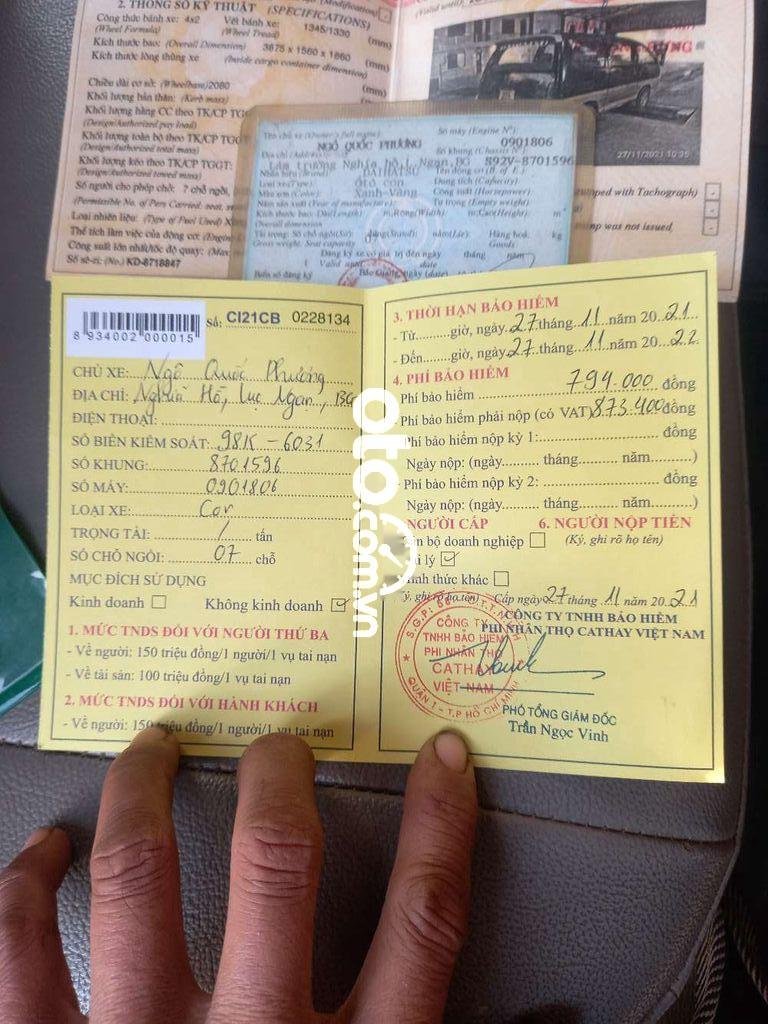 2. THÔNG SỐ KỸ THUẬT (SPECIFICATIONS)
Công thức bánh xe: 4x2 Vết bánh xe: 1345/1330 (mm)
(Wheel Formula) (Wheel Tread)
Kích thước bao: (Overall Dimension) 3675 x 1560 x 1860 (mm)
Kích thước lòng thùng xe (Inside cargo container dimension)
(mm)
Chiều dài cơ sở: (Wheelbase) 2080
Khối lượng bản thân: (Kerb mass)
Khối lượng hàng CC theo TK/CP TG
(Design/Authorized pay load)
Khối lượng toàn bộ theo TK/CP TGG
(Design/Authorized total mass)
Khối lượng kéo theo TK/CP TGGT:
(Design/Authorized towed mass)
Số người cho phép chở: 7 chỗ ngồi,
(Permissible No. of Pers Carried:
Loại nhiên liệu: (Type of Fuel Used) X
Thể tích làm việc của động cơ: (Engine
Công suất lớn nhất/tốc độ quay: (Max
Số sê-ri: (No.) KD-8718847
27/11/2021 10:35
ped with Tachograph)
mp was not issued,
Tên chủ xe (Owner's full name): Số máy (Engine N°)
NGÔ QUỐC PHƯƠNG 0901806
Địa chỉ (Address): Số khung (Chassis N°)
Lâm trường Nghĩa hồ L Ngạn BG S92V-8701596
Nhãn hiệu (Brand) DAIHATSU
Loại xe (Type): ôtô con Dung tích (Capacity)
Màu sơn (Color): Xanh-Vàng Công suất (Horsepower)
Năm sản xuất (Year of manufacture): Tự trọng (Empty weight)
Kích thước bao: Dài (Length) m;Rộng (Width) m;Cao (Height) m
Overall dimension
Tải trọng: Số chỗ ngồi (Sit) đứng (Stand) nằm (Lie) Hàng hoá: kg
Gross weight. Seat capacity Goods
Đăng ký xe có giá trị đến ngày tháng năm
Valid date
Biển số đăng ký Bắc Giang, ngày (date)
8 934002 000015
Số: CI21CB 0228134
CHỦ XE: Ngô Quốc Phương
ĐỊA CHỈ: Nghĩa Hồ, Lục Ngạn, BG
ĐIỆN THOẠI:
SỐ BIỂN KIỂM SOÁT: 98K - 6031
SỐ KHUNG: 8701596
SỐ MÁY: 0901806
LOẠI XE: Con
TRỌNG TẢI: / tấn
SỐ CHỖ NGỒI: 07 chỗ
MỤC ĐÍCH SỬ DỤNG
Kinh doanh Không kinh doanh
1. MỨC TNDS ĐỐI VỚI NGƯỜI THỨ BA
- Về người: 150 triệu đồng/1 người/1 vụ tai nạn
- Về tài sản: 100 triệu đồng/1 vụ tai nạn
2. MỨC TNDS ĐỐI VỚI HÀNH KHÁCH
- Về người: 150 triệu đồng/1 người/1 vụ tai nạn
3. THỜI HẠN BẢO HIỂM
- Từ.........giờ, ngày 27 tháng 11 năm 2021
- Đến.........giờ, ngày 27 tháng 11 năm 2022
4. PHÍ BẢO HIỂM
Phí bảo hiểm 794.000 đồng
Phí bảo hiểm phải nộp (có VAT) 873.400 đồng
Phí bảo hiểm nộp kỳ 1: đồng
Ngày nộp: (ngày.......... tháng.......... năm..........)
- Phí bảo hiểm nộp kỳ 2: đồng
Ngày nộp: (ngày.......... tháng.......... năm..........)
NGƯỜI CẤP 6. NGƯỜI NỘP TIỀN
bộ doanh nghiệp (Ký, ghi rõ họ tên)
lý
hình thức khác
ý, ghi rõ họ tên) Cấp ngày 27 tháng 11 năm 2021
CÔNG TY TNHH BẢO HIỂM
PHI NHÂN THỌ CATHAY VIỆT NAM
CÔNG TY
TNHH BẢO HIỂM
PHI NHÂN THỌ
CATHAY
VIỆT NAM
QUẬN 1 - T.P HỒ CHÍ MINH
PHÓ TỔNG GIÁM ĐỐC
Trần Ngọc Vinh
oto.com.vn